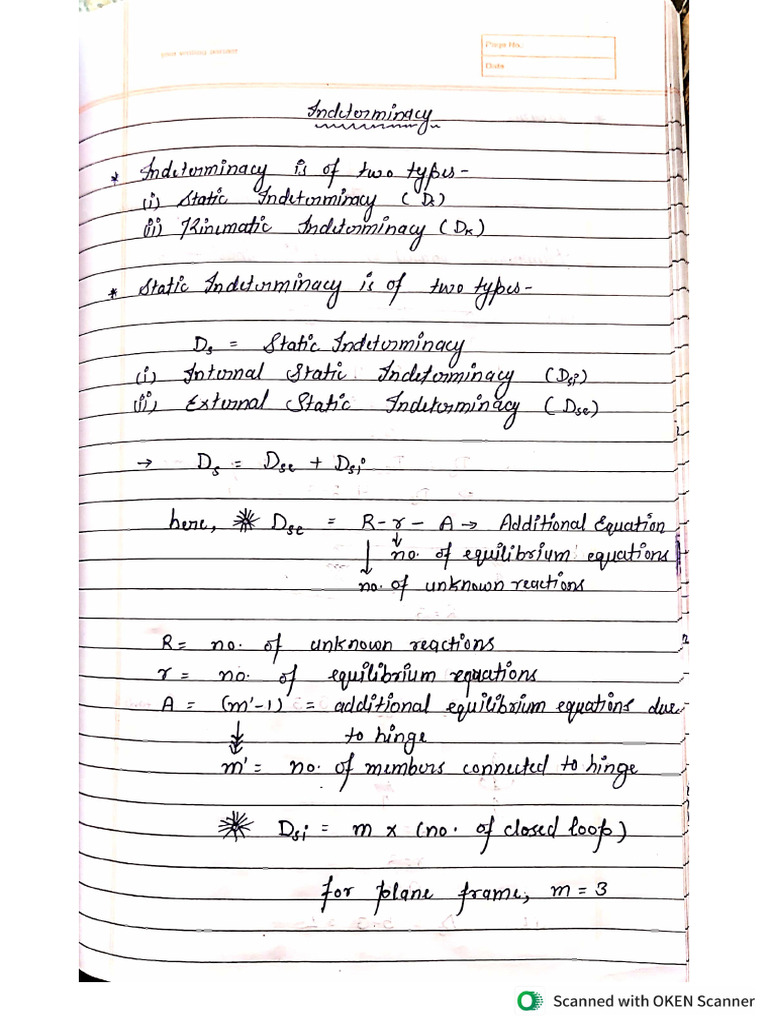 Page No.
Date
Indeterminacy
* Indeterminacy is of two types-
(i) Static Indeterminacy (Ds)
(ii) Kinematic Indeterminacy (Dk)
* Static Indeterminacy is of two types-
Ds = Static Indeterminacy
(i) Internal Static Indeterminacy (Dsi)
(ii) External Static Indeterminacy (Dse)
→ Ds = Dse + Dsi
here, * Dse = R - r - A → Additional Equation
no. of equilibrium equations
no. of unknown reactions
R = no. of unknown reactions
r = no. of equilibrium equations
A = (m'-1) = additional equilibrium equations due
to hinge
m' = no. of members connected to hinge
* Dsi = m x (no. of closed loop)
for plane frame, m = 3
Scanned with OKEN Scanner